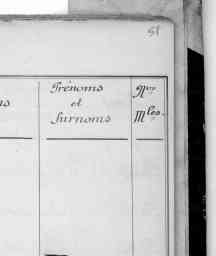 51
Prénoms
et
Surnoms
Nos
Mles.